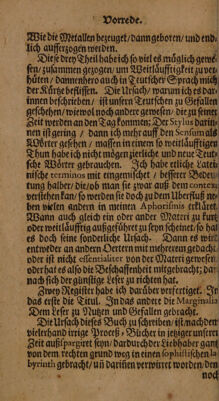 Vorrede.
Wie die Metallen bezeuget / dann geboren / und end-
lich aufferzogen werden.
Diese drey Theil habe ich so viel es müglich gewe-
sen / zusammen gezogen / um Weitläufftigkeit zu ver-
hüten / dannenhero auch in Teutscher Sprach mich
der Kürtze beflissen. Die Ursach / warum ich es dar-
innen beschrieben / ist unsern Teutschen zu Gefallen
geschehen / wie wol noch andere gewesen / die zu seiner
Zeit werden an den Tag kommen; Der Stylus darin-
nen ist gering / dann ich mehr auff den Sensum als
Wörter gesehen / massen in einem so weitläufftigen
Thun habe ich nicht mögen zierliche und neue Teut-
sche Wörter gebrauchen. Ich habe etliche Latei-
nische terminos mit eingemischet / besserer Bedeu-
tung halber / die / ob man sie zwar auß dem context
verstehen kan / so werden sie doch zu dem Uberfluß ne-
ben vielen andern in meinen Aphorismis erkläret.
Wann auch gleich ein oder ander Materi zu kurtz
oder weitläufftig außgeführet zu seyn scheinet / so hat
es doch seine sonderliche Ursach. Dann es wird
entweder an andern Oertern mit mehrerm gedacht /
oder ist nicht essentialiter von der Materi gewesen /
oder hat es also die Beschaffenheit mitgebracht; dar-
nach sich der günstige Leser zu richten hat.
Zwey Register habe ich darüber verfertiget. In
das erste die Titul. In das andere die Marginalia
Dem Leser zu Nutzen und Gefallen gebracht.
Die Ursach dieses Buch zu schreiben / ist / nachdem
vielerhand irrige Process, Bücher in jetziger unserer
Zeit außspargiret seyn / dardurch der Liebhaber gantz
von dem rechten grund weg in einen sophistischen la-
byrinth gebracht / uñ darinen verwirret worden / den
noch